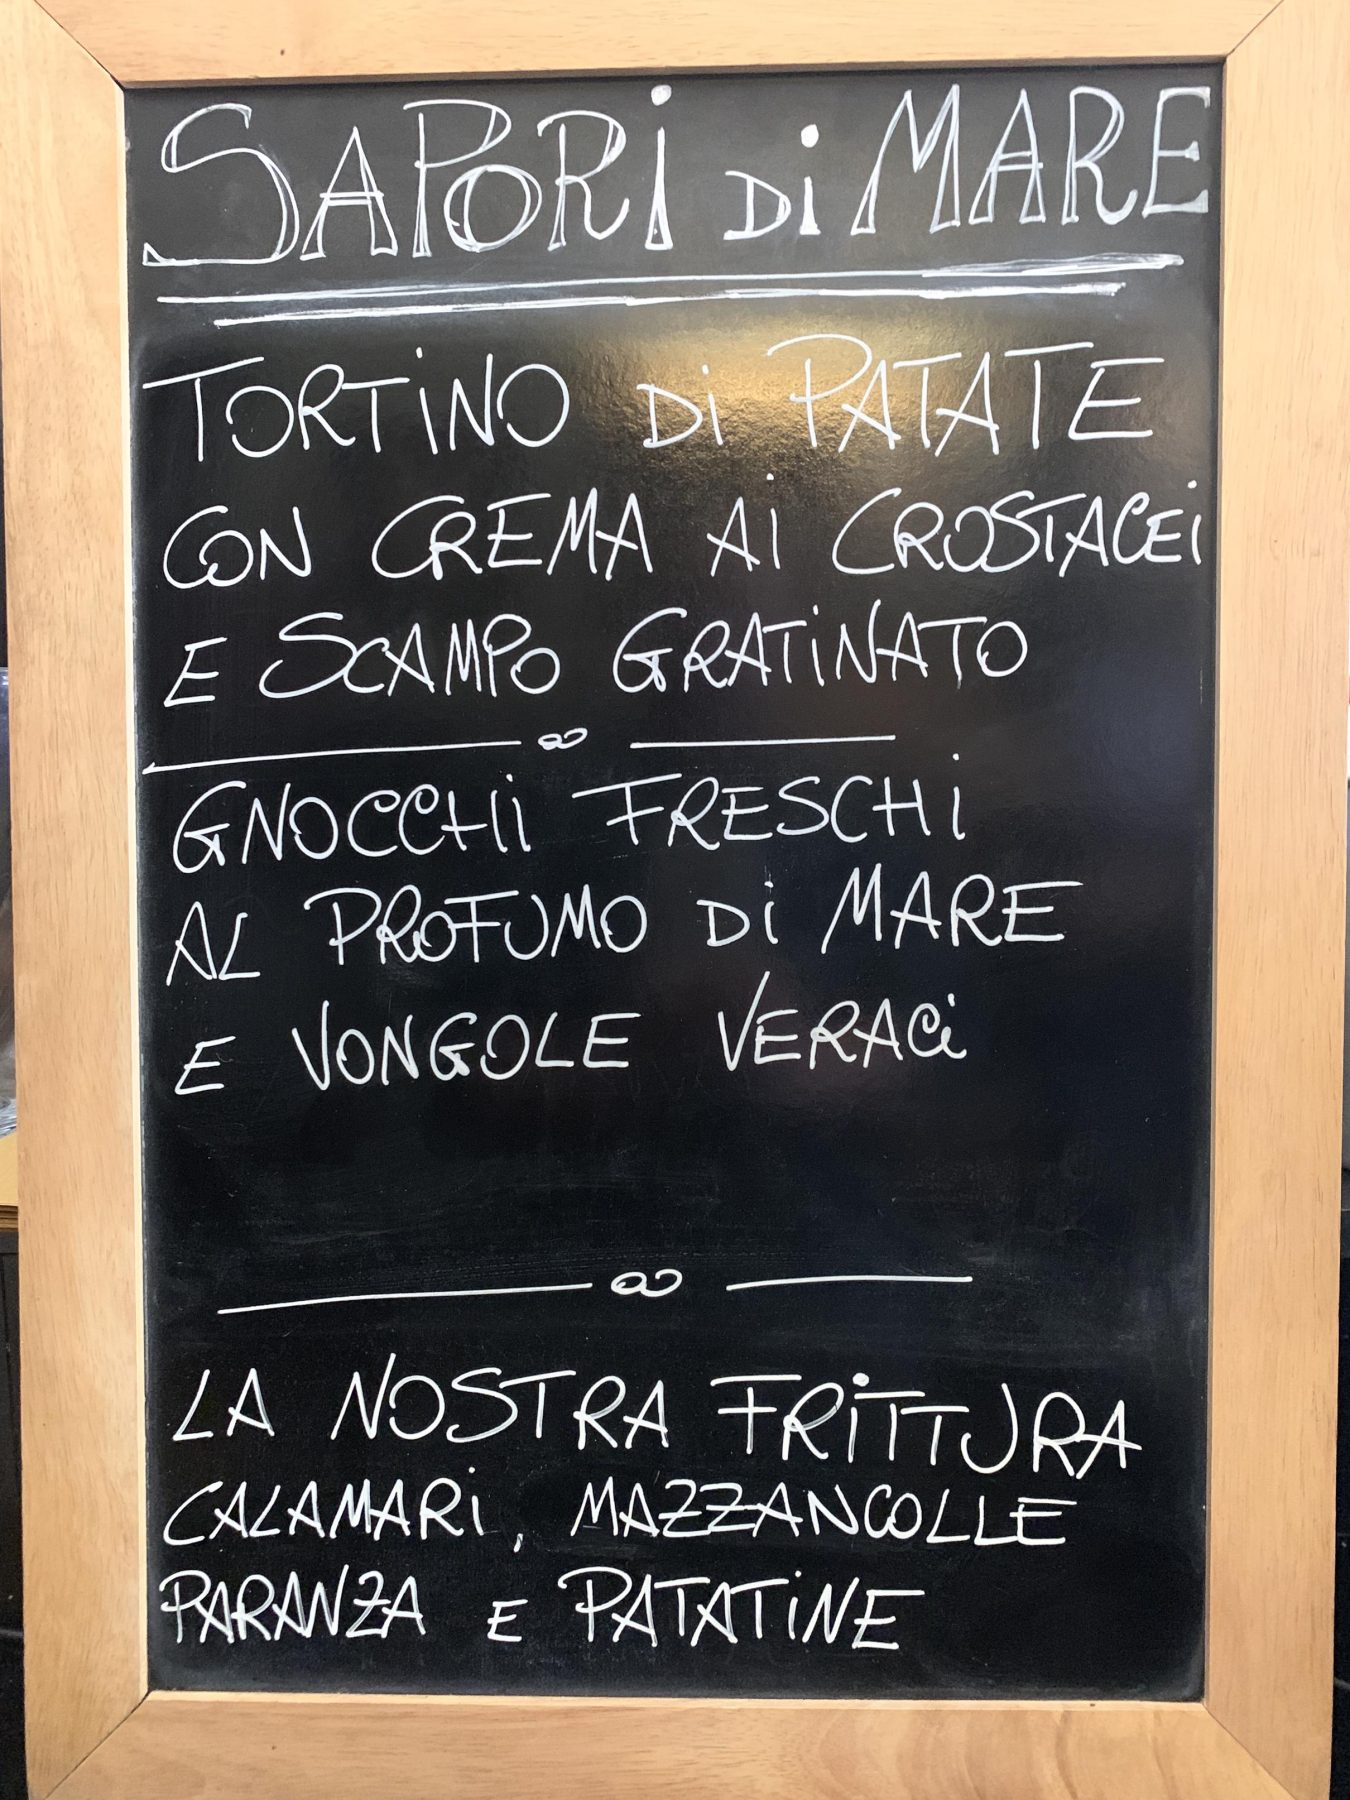 SAPORi Di MARE
TORTiNO Di PATATE
CON CREMA Ai CROSTACEi
E SCAMPO GRATiNATO
GNOCCHi FRESCHi
AL PROFUMO Di MARE
E VONGOLE VERACi
LA NOSTRA FRiTTURA
CALAMARi, MAZZANCOLLE
PARANZA E PATATiNE